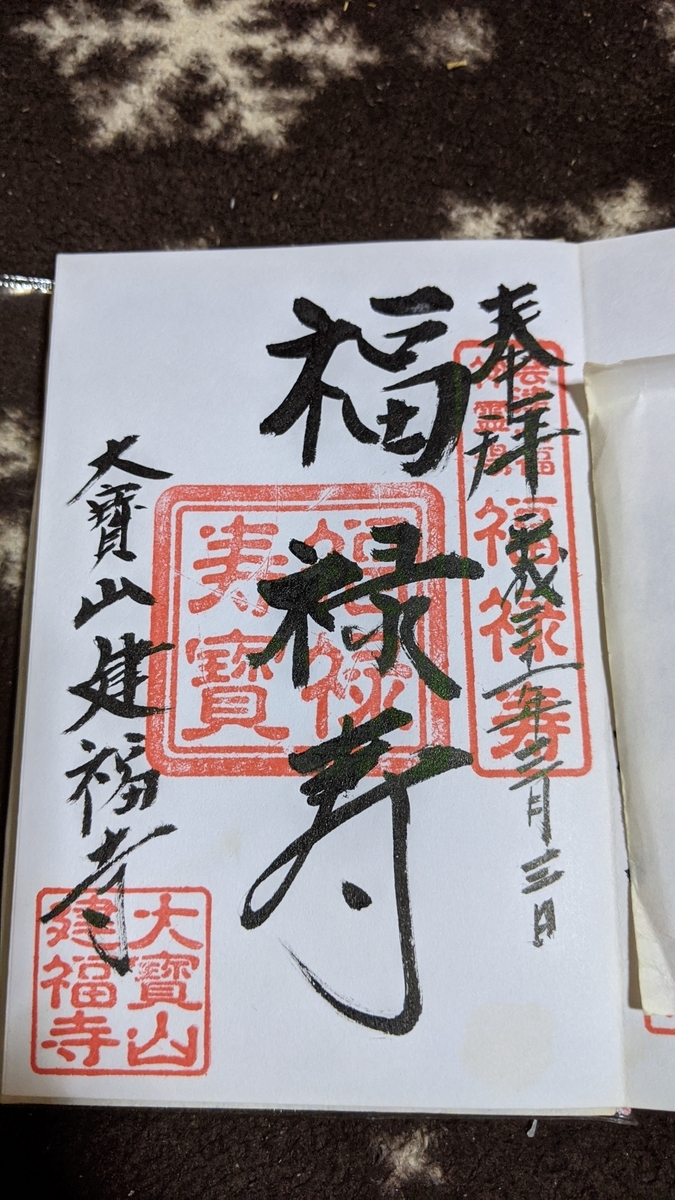 奉拝
平成三十一年三月三日
福禄寿
福禄寿
福禄
寿寶
大寶山建福寺
大寶山
建福寺